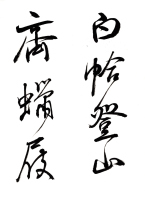 白帢登山
齋蠟屐